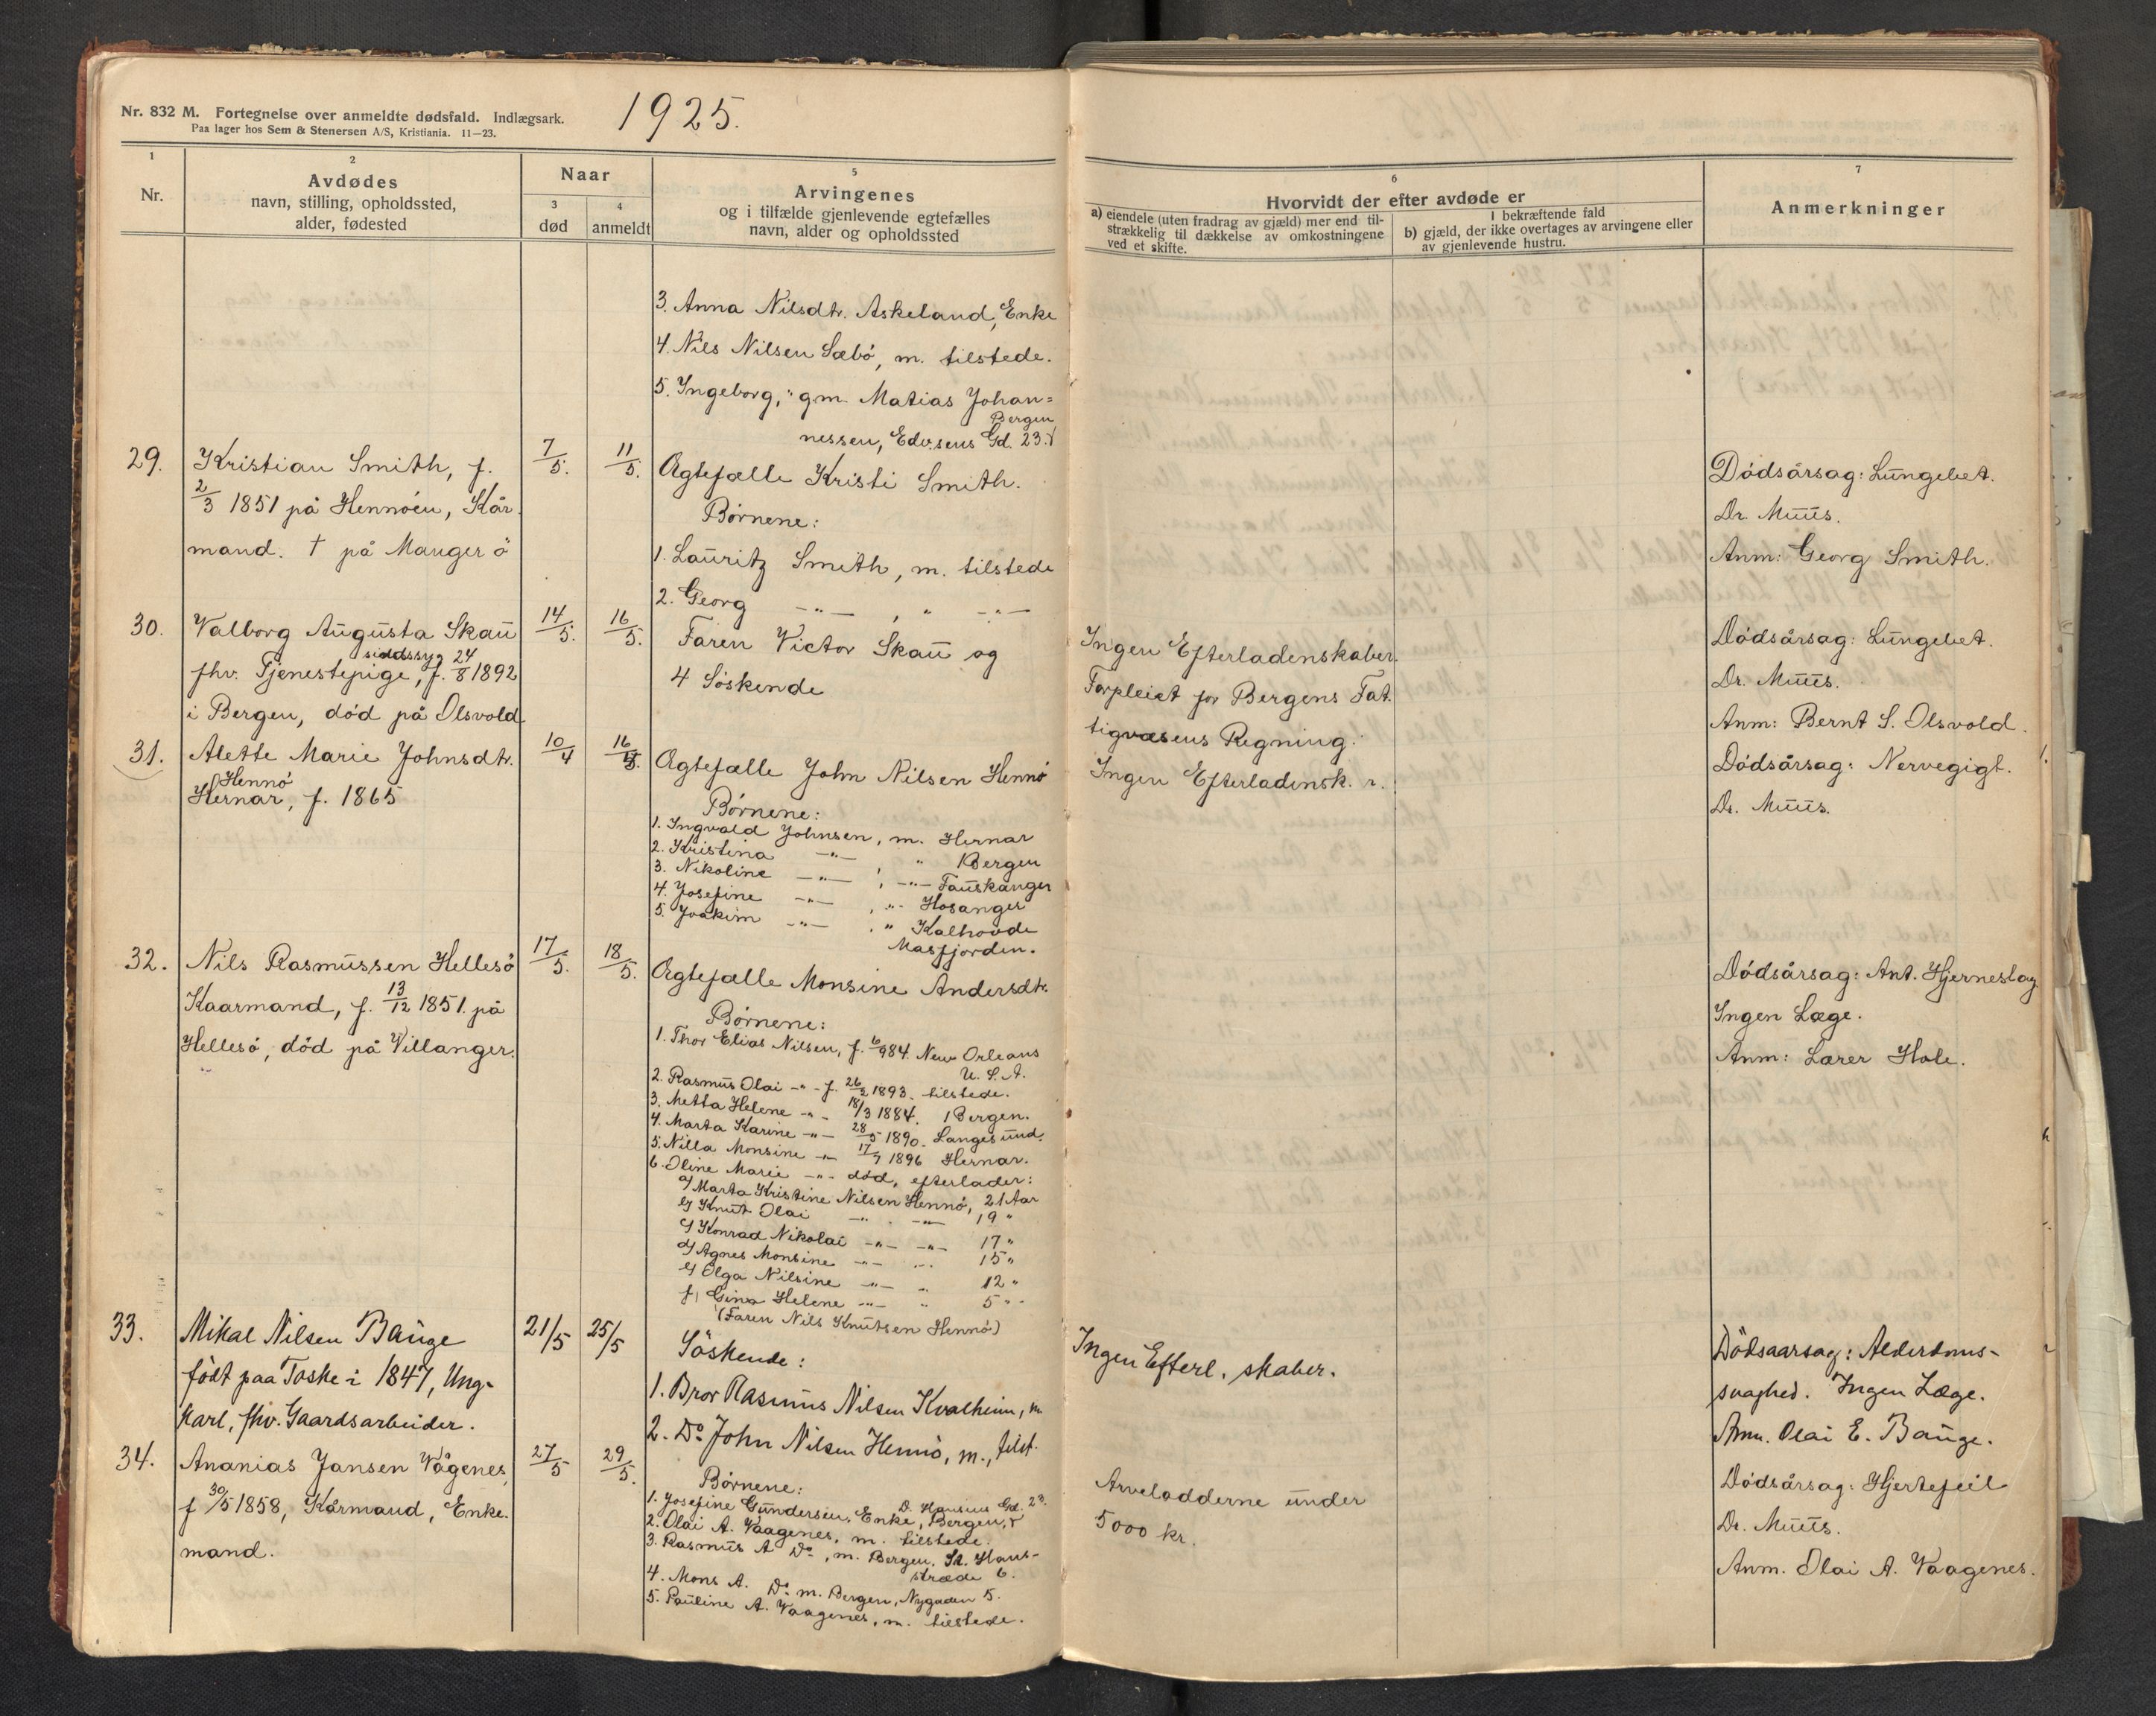 Nr. 832 M. Fortegnelse over anmeldte dødsfald. Indlægsark.
Paa lager hos Sem & Stenersen A/S, Kristiania. 11—23.
1925.
1
Nr.
2
Avdødes
navn, stilling, opholdssted,
alder, fødested
Naar
3
død
4
anmeldt
5
Arvingenes
og i tilfælde gjenlevende egtefælles
navn, alder og opholdssted
6
Hvorvidt der efter avdøde er
a) eiendele (uten fradrag av gjæld) mer end til-
strækkelig til dækkelse av omkostningene
ved et skifte.
I bekræftende fald
b) gjæld, der ikke overtages av arvingene eller
av gjenlevende hustru.
7
Anmerkninger
3. Anna Nilsdtr. Askeland, Enke
4. Nils Nilsen Sæbö, m. tilstede.
5. Ingeborg, " gm. Matias Johan=
Bergen
nessen, Edv.sens Gd. 23.
29.
Kristian Smith, f.
2/3 1851 på Hennöen, Kår
mand. † på Manger ö
7/5.
11/5.
Ægtefælle Kristi Smith.
Börnene:
1. Lauritz Smith, m. tilstede
2. Georg —"— , " —"—
Dödsårsag: Lungebet.
Dr. Muus.
Anm: Georg Smith.
30.
Valborg Augusta Skau
sindssyg
fhv. Tjenestepige, f. 24/8 1892
i Bergen, död på Olsvold
14/5.
16/5.
Faren Victor Skau og
4 Söskende
Ingen Efterladenskaber.
Forpleiet for Bergens Fat.
tigvæsens Regning.
Dödsårsag: Lungebet.
Dr. Muus.
Anm: Bernt S. Olsvold.
31.
Alette Marie Johnsdtr.
Hennö
Hernar, f. 1865
10/4
16/5.
Ægtefælle John Nilsen Hennö
Börnene:
1. Ingvald Johnsen, m. Hernar
2. Kristina —"— " Bergen
3. Nikoline —"— , —"— Fauskanger
4. Josefine —"— , "- Hosanger
5. Joakim —"— , " Kalhovde
Masfjorden.
Ingen Efterladensk. r.
Dödsårsag: Nervegigt.
Dr. Muus.
32.
Nils Rasmussen Hellesö
Kaarmand, f. 13/12 1851. på
Hellesö, död på Villanger.
17/5.
18/5.
Ægtefælle Monsine Andersdtr.
Börnene:
1. Thor Elias Nilsen, f. 6/9 84. New Orleans
U. S. A.
2. Rasmus Olai -"- f. 26/2 1893. tilstede.
3. Metta Helene -"- 18/3 1884. Bergen.
4. Marta Karine -"- 28/5 1890. Langesund.
5. Nilla Monsine -"- 17/7 1896 Hernar.
6. Oline Marie -"- död, efterlader:
a/ Marta Kristine Nilsen Hennö, 21 Aar
b/ Knut Olai —"— —"— 19 "
c/ Konrad Nikolai —"— —"— 17 "
d/ Agnes Monsine —"— —"— 15 "
e/ Olga Nilsine —"— " 12 "
f/ Gina Helene —"— " 5 "
(Faren Nils Knutsen Hennö)
Dödsårsag: Ant. Hjerneslag
Ingen Læge.
Anm: Lærer Hole.
33.
Mikal Nilsen Bauge
födt paa Toske i 1847, Ung-
karl, fhv. Gaardsarbeider.
21/5
25/5
Söskende:
1. Bror Rasmus Nilsen Kvalheim, m
2. Do. John Nilsen Hennö, m., tilst.
Ingen Efterl. skaber.
Dödsaarsag: Alderdoms-
svaghed. Ingen Læge.
Anm. Olai E. Bauge.
34.
Ananias Jansen Vågenes,
f 30/5 1858, Kårmand, Enke.
mand.
27/5
29/5.
Börnene:
D. Hansens Gd. 2
1. Josefine Gundersen, Enke, Bergen,
2. Olai A. Vaagenes, m. tilstede.
3. Rasmus A Do., m. Bergen. St. Hans-
stræde 6.
4. Mons A. Do. m. Bergen, Nygaden 5.
5. Pauline A. Vaagenes, m. tilstede.
Arvelodderne under
5000 kr.
Dödsårsag: Hjertefeil
Dr. Muus.
Anm. Olai A. Vaagenes.